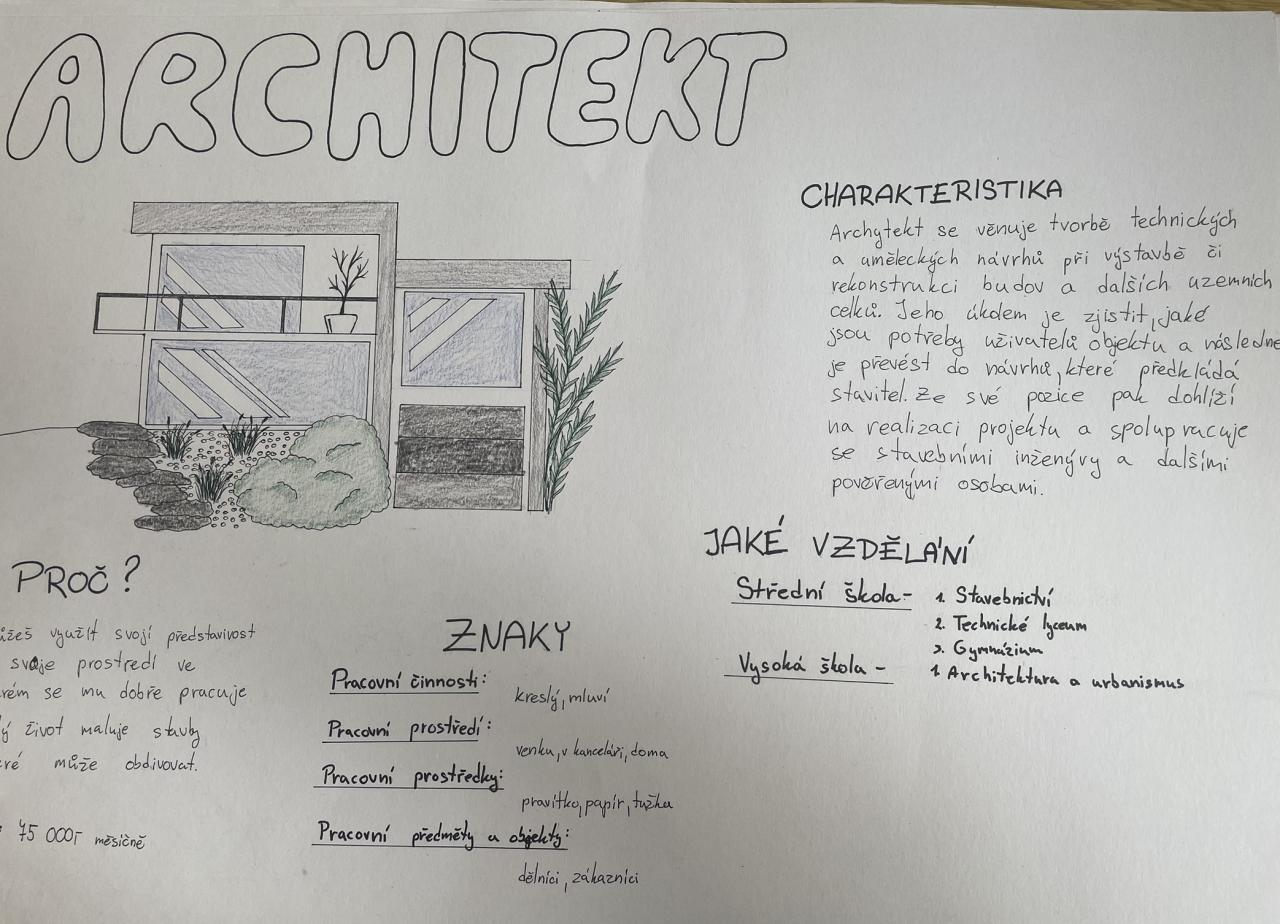 ARCHITEKT
CHARAKTERISTIKA
Archytekt se věnuje tvorbě technických
a uměleckých návrhů při výstavbě či
rekonstrukci budov a dalších uzemních
celků. Jeho úkolem je zjistit, jaké
jsou potřeby uživatelů objektu a následně
je převést do návrhů, které předkládá
stavitel. Ze své pozice pak dohlíží
na realizaci projektu a spolupracuje
se stavebními inženýry a dalšími
pověřenými osobami.
JAKÉ VZDĚLÁNÍ
Střední škola- 1. Stavebnictví
2. Technické lyceum
3. Gymnázium
Vysoká škola - 1. Architektura a urbanismus
PROČ?
využít svojí představivost
svoje prostředí ve
se mu dobře pracuje
život maluje stavby
může obdivovat.
45 000,- měsíčně
ZNAKY
Pracovní činnosti:
kreslý, mluví
Pracovní prostředí:
venku, v kanceláři, doma
Pracovní prostředky:
pravítko, papír, tužka
Pracovní předměty a objekty:
dělníci, zákazníci